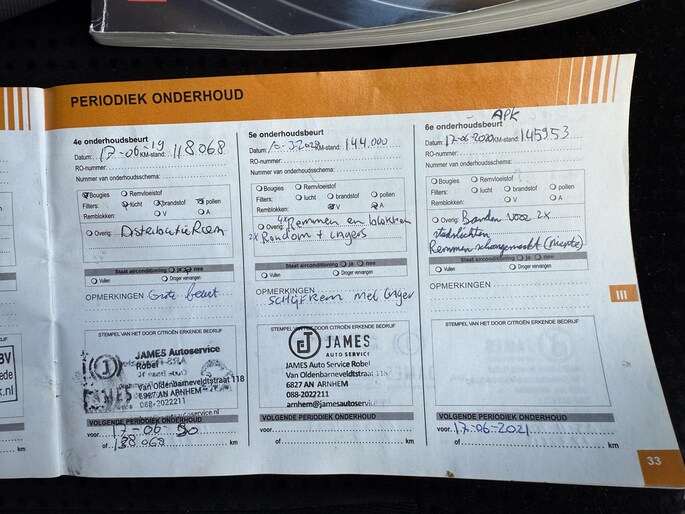 PERIODIEK ONDERHOUD
4e onderhoudsbeurt
Datum: 17-06-19 KM-stand: 118.068
RO-nummer:
Nummer van onderhoudsschema:
Bougies Remvloeistof
Filters: lucht brandstof pollen
Remblokken: V A
Overig: Distributie Riem
Staat airconditioning ja nee
Vullen Droger vervangen
OPMERKINGEN Grote beurt
STEMPEL VAN HET DOOR CITROËN ERKENDE BEDRIJF
JAMES Autoservice
Robel
Van Oldenbarneveldtstraat 118
6827 AN ARNHEM
088-2022211
VOLGENDE PERIODIEK ONDERHOUD
voor 17-06-20
of 138 068 km
5e onderhoudsbeurt
Datum: KM-stand: 144.000
RO-nummer:
Nummer van onderhoudsschema:
Bougies Remvloeistof
Filters: lucht brandstof pollen
Remblokken: V A
Overig: 4x Remmen en blokken
2x Rondom + lagers
Staat airconditioning ja nee
Vullen Droger vervangen
OPMERKINGEN
SCHIJFRem met lager
STEMPEL VAN HET DOOR CITROËN ERKENDE BEDRIJF
JAMES
AUTO SERVICE
JAMES Auto Service Robel
Van Oldenbarneveldtstraat 118
6827 AN ARNHEM
088-2022211
arnhem@jamesautoservice
VOLGENDE PERIODIEK ONDERHOUD
voor
of km
APK
6e onderhoudsbeurt
Datum: 17-06-2020 KM-stand: 145953
RO-nummer:
Nummer van onderhoudsschema:
Bougies Remvloeistof
Filters: lucht brandstof pollen
Remblokken: V A
Overig: Banden voor 2x
stadslichten
Remmen schoongemaakt
Staat airconditioning ja nee
Vullen Droger vervangen
OPMERKINGEN
STEMPEL VAN HET DOOR CITROËN ERKENDE BEDRIJF
VOLGENDE PERIODIEK ONDERHOUD
voor 17-06-2021
of km
III
33
BV
ede
k.nl